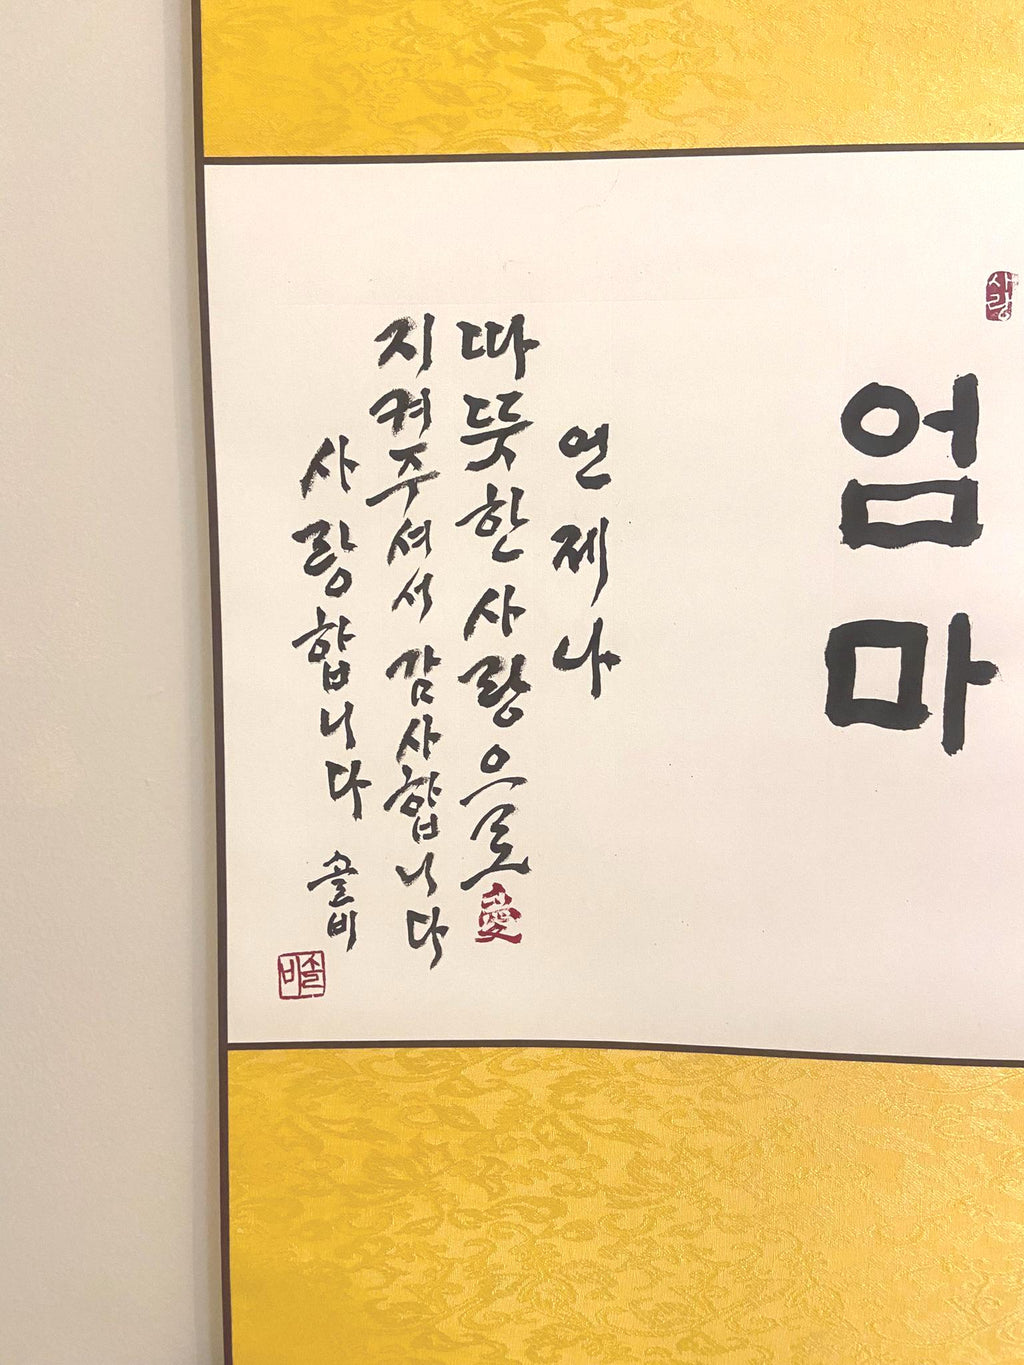 사랑
엄마
언제나
따뜻한 사랑으로
愛
지켜주셔서 감사합니다
사랑합니다 솔비
솔비